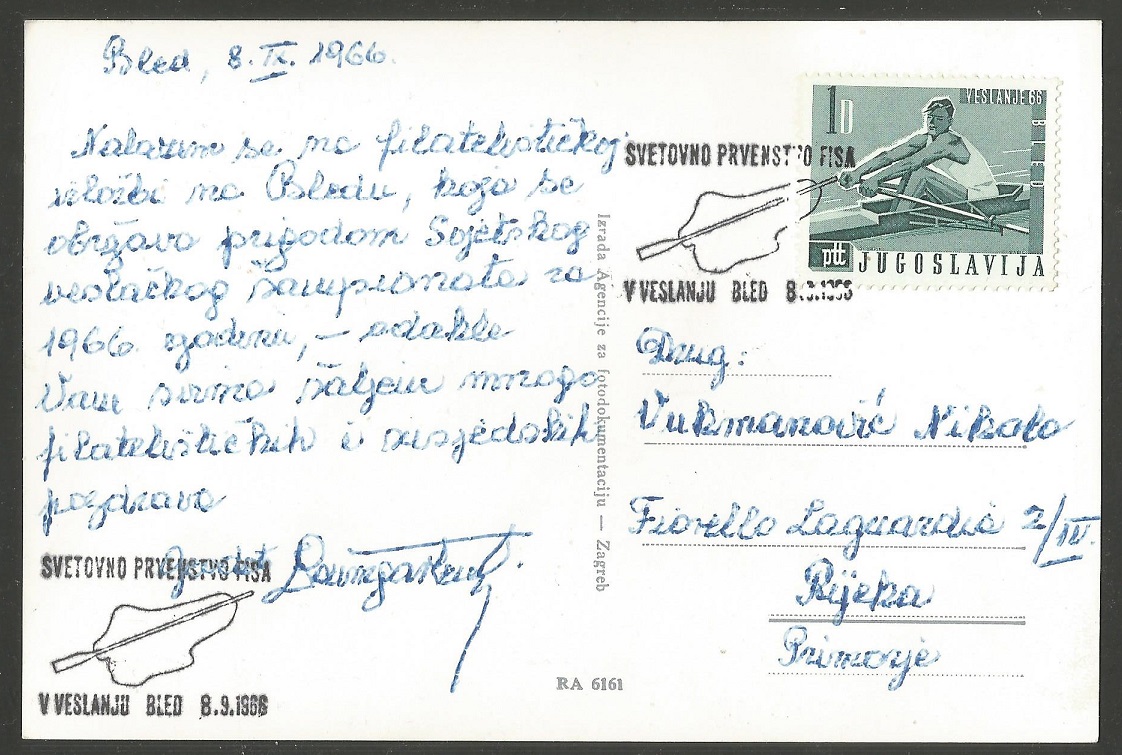 Bled, 8. IX. 1966.
Nalazim se na filatelističkoj
izložbi na Bledu, koja se
održava prigodom Svjetskog
veslačkog šampionata za
1966. godinu, – odakle
Vam svima šaljem mnogo
filatelističkih i susjedskih
pozdrava
SVETOVNO PRVENSTVO FISA
V VESLANJU BLED 8.9.1966
Izrada Agencije za fotodokumentaciju — Zagreb
RA 6161
SVETOVNO PRVENSTVO FISA
V VESLANJU BLED 8.9.1966
1D
VESLANJE 66
BLED
ptt
JUGOSLAVIJA
Drug:
Vukmanović Nikola
Fiorello Laguardie 2/IV.
Rijeka
Primorje